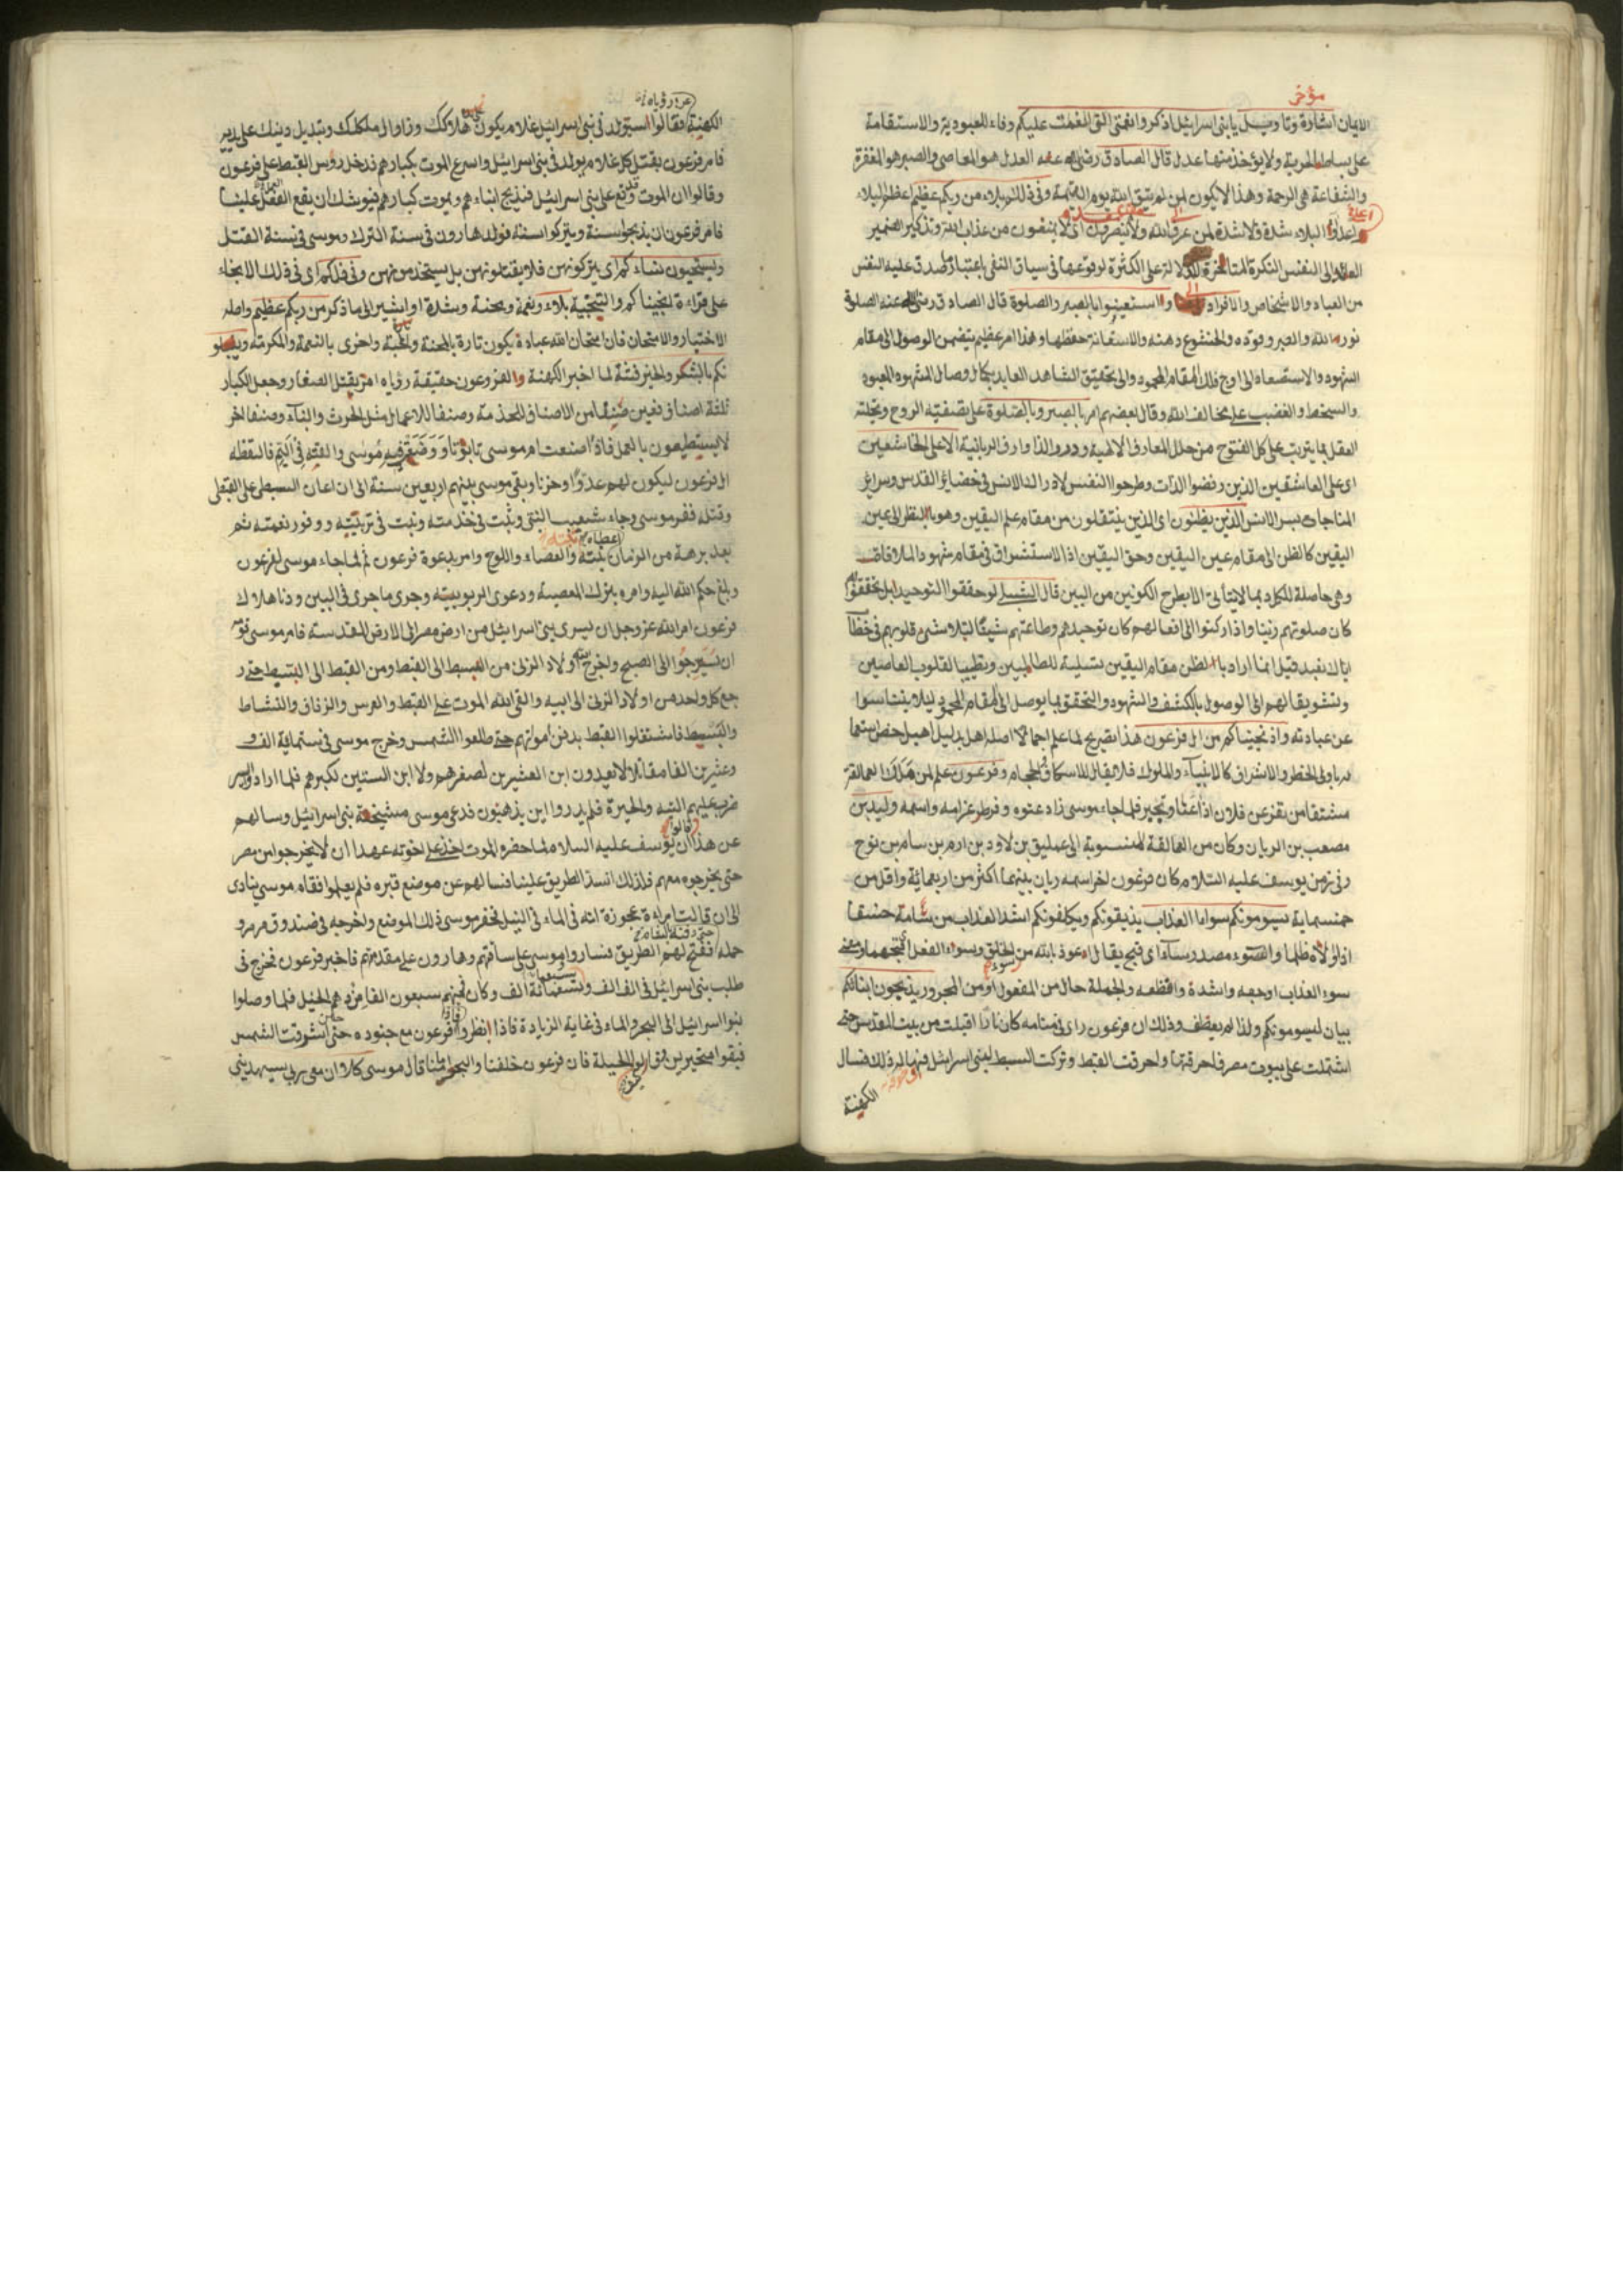 مؤخر
الايمان اشارة وتاويل يا بنى اسرائيل اذكروا نعمتى التى انعمت عليكم وفاء للعبودية والاستقامة
على بساط الحرية ولا يؤخذ منها عدل قال الصادق رضى الله عنه العدل هو المعاصى والصبر هو المغفرة
والشفاعة هى الرحمة وهذا لا يكون لمن لم يتق الله يوم القيمة وفى ذلكم بلاء من ربكم عظيم اعظم البلاء
البلاء شدة ولا شدة لمن عرف الله ولا ينصرون اى لا يمنعون من عذاب الله وتذكير الضمير
العائد الى النفس النكرة لدلالة على الكثرة لوقوعها فى سياق النفى باعتبار صدق عليه النفس
من العباد والاشخاص والافراد واستعينوا بالصبر والصلوة قال الصادق رضى الله عنه الصلوة
نور الله والصبر وقوده والخشوع دهنه والاستعانة حفظها وهذا امر عظيم يتضمن الوصول الى مقام
الشهود والاستصعاد الى اوج فلك المقام المحمود والى تحقيق الشاهد العابد بكمال وصال المشهود المعبود
والسخط والغضب على مخالف الله وقال بعضهم امر بالصبر وبالصلوة على تصفية الروح وتجلية
العقل بما يترتب على كل الفتوح من حلل المعارف الالهية وورود الذوارف الربانية الا على الخاشعين
اى على العاشقين الذين رفضوا الذات وطرحوا النفس لادراك الانس فى خضائر القدس وسراير
المناجات بسر الانس الذين يظنون اى الذين ينتقلون من مقام علم اليقين وهو بالنظر الى عين
اليقين كالظن الى مقام عين اليقين وحق اليقين اذ الاستشراق فى مقام شهود الملاقات
وهى حاصلة للكل دبما لا يتأتى الا بطرح الكونين من البين قال الشبلى لو حققوا التوحيد بل تحققوا
كان صلوتهم زينا واذا ركنوا الى افعالهم كان توحيدهم وطاعتهم شيئا لتلاشى قلوبهم فى خطأ
اياك نعبد قيل انما اراد بالظن مقام اليقين تسلية للطالبين وتطييبا لقلوب العاصين
وتشويقا لهم الى الوصول بالكشف والشهود والتحقق بما يوصل الى المقام المحمود ليلا يتناسوا
عن عبادته واذ نجيناكم من ال فرعون هذا تصريح لما علم اجمالا اصله اهل بدليل اهيل خص استعمالها
باولى الخطر والاشراف كالانبياء والملوك فلا يقال للاسكاف والحجام وفرعون علم لمن ملك العمالقة
مشتقا من تفرعن فلان اذا عتا وتجبر فلما جاء موسى زاد عتوه وفرط غرامه واسمه وليد بن
مصعب بن الريان وكان من العمالقة المنسوبة الى عمليق بن لاود بن ارم بن سام بن نوح
وفى زمن يوسف عليه السلام كان فرعون اخر اسمه ريان بينهما اكثر من اربعمائة واقل من
خمسماية يسومونكم سوء العذاب يذيقونكم ويكلفونكم اشد العذاب من سامه خسفا
اذا ولاه ظلما والسوء مصدر ساء اى قبح يقال اعوذ بالله من الخلق وسوء الفعل اى قبحهما ومعنى
سوء العذاب اوجعه واشده وافظعه والجملة حال من المفعول او من المجرور يذبحون ابنائكم
بيان ليسومونكم ولذا لم يعطف وذلك ان فرعون راى فى منامه كان نارا اقبلت من بيت المقدس حتى
اشتملت على بيوت مصر فاحرقتها واحرقت القبط وتركت السبط لبنى اسرائيل فسال
الكهنة
عن رؤياه
الكهنة فقالوا سيولد فى بنى اسرائيل غلام يكون هلاكك وزوال ملكك وتبديل دينك على يديه
فامر فرعون بقتل كل غلام يولد فى بنى اسرائيل واسرع الموت بكبارهم فدخل رؤس القبط على فرعون
وقالوا ان الموت وقع على بنى اسرائيل فيذبح ابناءهم ويموت كبارهم فيوشك ان يقع العمل علينا
فامر فرعون ان يذبحوا سنة ويتركوا سنة فولد هارون فى سنة الترك وموسى فى سنة القتل
ويستحيون نساءكم اى يتركونهن فلا يقتلونهن بل يستخدمونهن وفى ذلكم اى فى ذلك الانجاء
على قراءة انجيناكم والتنجية بلاء ونعمة ومحنة وشدة او اشير الى ما ذكر من ربكم عظيم واصله
الاختبار والامتحان فان امتحان الله عباده يكون تارة بالمحنة واخرى بالنعمة والمكرمة
لما اخبر الكهنة الفرعون حقيقة رؤياه امر بقتل الصغار وجعل الكبار
ثلثة اصناف فعين صنفا من الاصناف للخدمة وصنفا للاعمال مثل الحرث والبناء وصنفا اخر
لا يستطيعون بالعمل فاذا صنعت ام موسى تابوتا ووضعت فيه موسى والقته فى اليم فالتقطه
ال فرعون ليكون لهم عدوا وحزنا وبقى موسى بينهم اربعين سنة الى ان اعان السبطى على القبطى
وقتله ففر موسى وجاء شعيب النبى وثبت فى خدمته ونبت فى تربيته ووفور نعمته ثم
بعد برهة من الزمان اعطاه والعصاء واللوح وامر بدعوة فرعون ثم لما جاء موسى لفرعون
وبلغ حكم الله اليه وامره بترك المعصية ودعوى الربوبية وجرى ما جرى فى البين ودنا هلاك
فرعون امر الله عز وجل ان يسرى بنى اسرائيل من ارض مصر الى الارض المقدسة فامر موسى قومه
ان يسرجوا الى الصبح واخرج اولاد الزنى من السبط الى القبط ومن القبط الى السبط حتى
رجع كل واحد من اولاد الزنى الى ابيه والقى الله الموت على القبط والعرس والزفاف والنشاط
فاشتغلوا القبط بدفن امواتهم حتى طلعوا الشمس وخرج موسى فى ستماية الف
وعشرين الفا مقاتلا لا يعدون ابن العشرين لصغرهم ولا ابن الستين لكبرهم فلما ارادوا السير
ضرب عليهم التيه والحيرة فلم يدروا اين يذهبون فدعى موسى مشيخة بنى اسرائيل وسالهم
عن هذا قالوا ان يوسف عليه السلام لما حضره الموت اخذ على اخوته عهدا ان لا يخرجوا من مصر
حتى يخرجوه معهم فلذلك انسد الطريق علينا فسالهم عن موضع قبره فلم يعلموا فقام موسى ينادى
الى ان قالت امراة عجوزة انه فى الماء فى النيل فحفر موسى ذلك الموضع واخرجه فى صندوق مرمر و
حمله ففتح لهم الطريق فساروا وموسى على ساقتهم وهارون على مقدمتهم فاخبر فرعون فخرج فى
طلب بنى اسرائيل فى الف الف وسبعمائة الف وكان فيهم سبعون الفا من دهم الخيل فلما وصلوا
بنوا اسرائيل الى البحر والماء فى غاية الزيادة فاذا انظروا فرعون مع جنوده حتى اشرقت الشمس
فبقوا متحيرين الحيلة فان فرعون خلفنا والبحر قال موسى كلا ان معى ربى سيهدينى